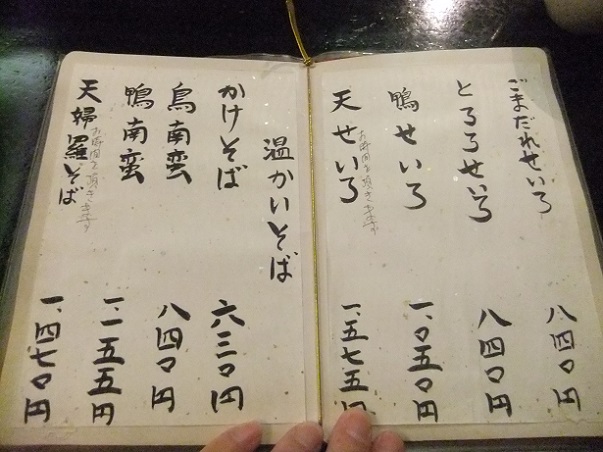 ごまだれせいろ 八四〇円
とろろせいろ 八四〇円
鴨せいろ 一、〇五〇円
天せいろ 一、五七五円
お時間を頂きます
温かいそば
かけそば 六三〇円
鳥南蛮 八四〇円
鴨南蛮 一、一五五円
天婦羅そば 一、四七〇円
お時間を頂きます